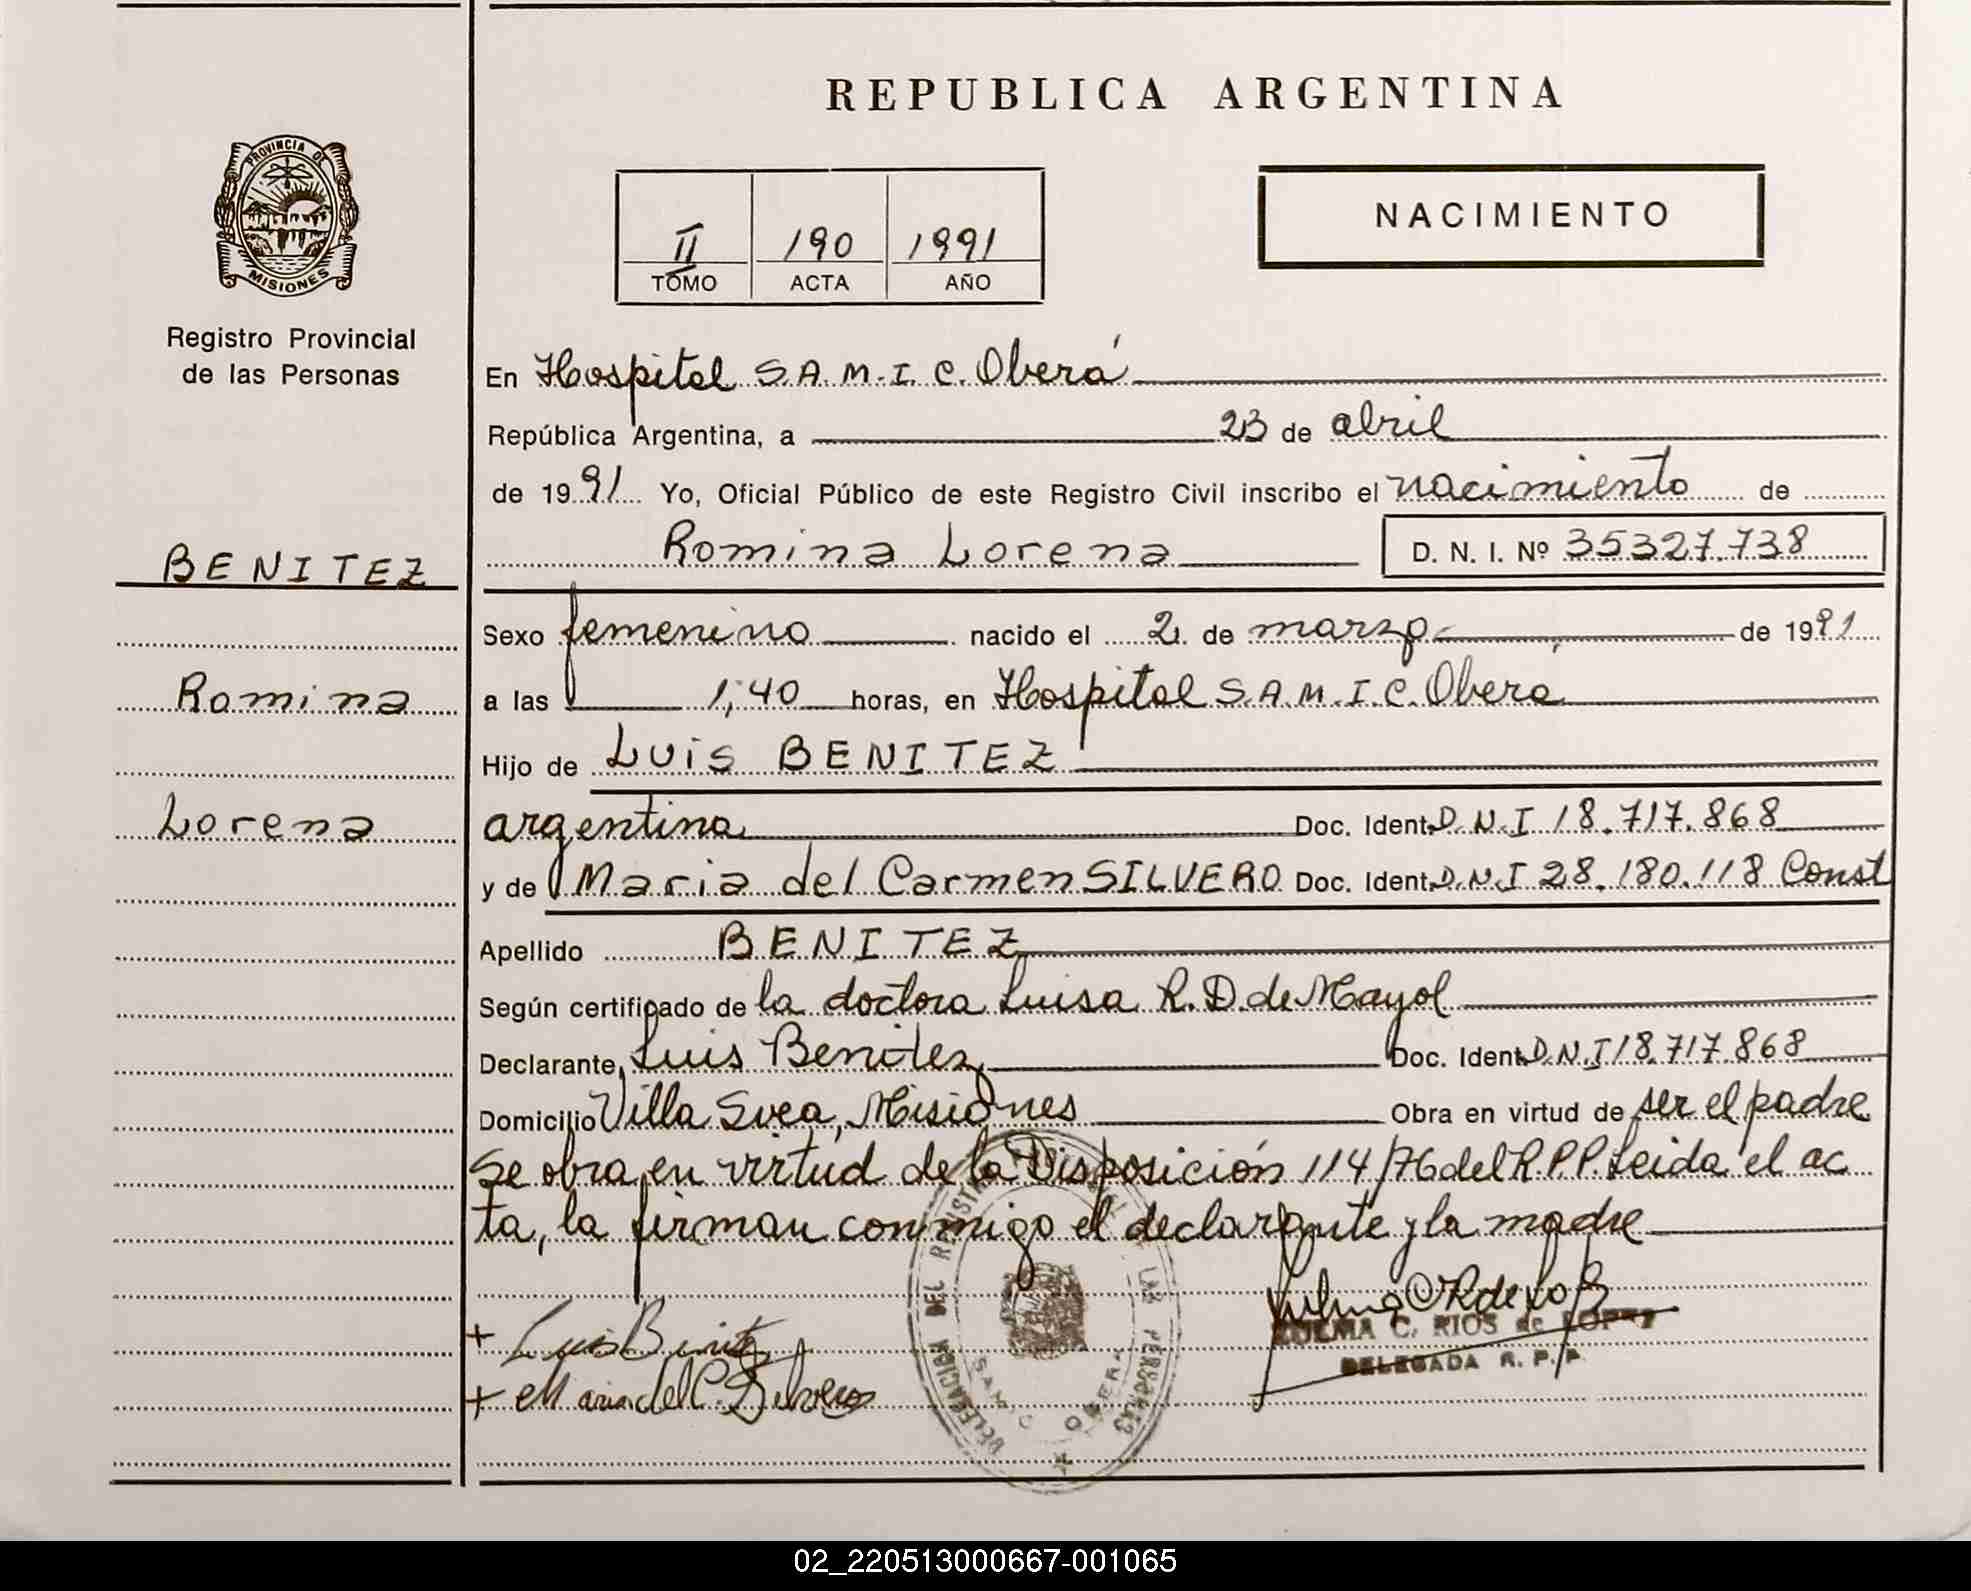 REPUBLICA ARGENTINA
PROVINCIA DE
MISIONES
Registro Provincial
de las Personas
II 190 1991
TOMO ACTA AÑO
NACIMIENTO
En Hospital S.A.M.I.C. Oberá
República Argentina, a 23 de abril
de 1991 Yo, Oficial Público de este Registro Civil inscribo el nacimiento de
Romina Lorena D. N. I. Nº 35327.738
BENITEZ
Romina
Lorena
Sexo femenino nacido el 2 de marzo de 1991
a las 1,40 horas, en Hospital S.A.M.I.C. Oberá
Hijo de Luis BENITEZ
argentina Doc. Ident. D.N.I 18.717.868
y de Maria del Carmen SILVERO Doc. Ident. D.N.I 28.180.118 Const
Apellido BENITEZ
Según certificado de la doctora Luisa R. D. de Mayol
Declarante, Luis Benitez Doc. Ident. D.N.I 18.717.868
Domicilio Villa Svea, Misiones Obra en virtud de ser el padre
Se obra en virtud de la Disposición 114/76 del R.P.P. Leida el ac
ta, la firman conmigo el declarante y la madre
+ Luis Benitez
+ Maria del C. Silvero
ZULMA C. RIOS de LOPEZ
DELEGADA R. P. P.
DELEGACION DEL REGISTRO DE LAS PERSONAS
OBERA
02_220513000667-001065